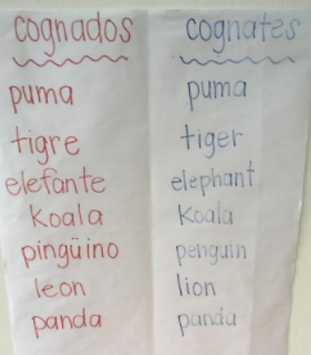 cognados cognates
puma puma
tigre tiger
elefante elephant
Koala Koala
pingüino penguin
leon lion
panda panda